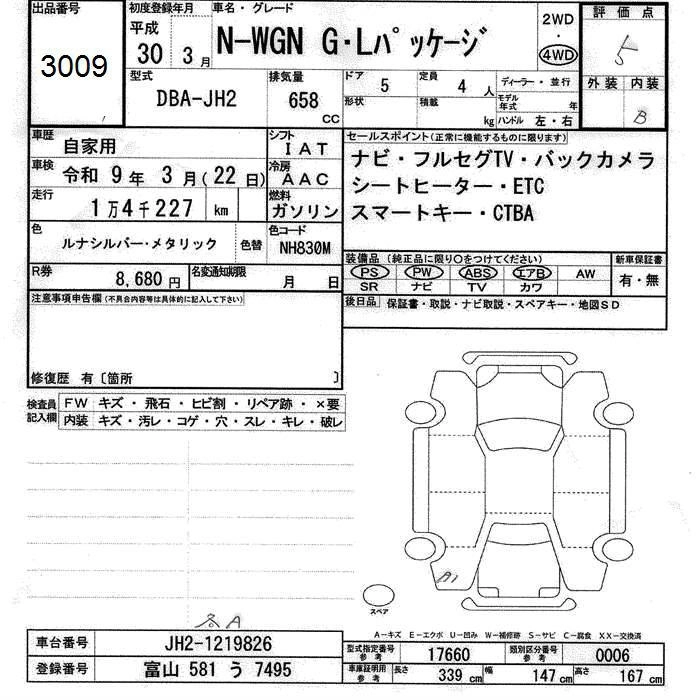 出品番号 初度登録年月 車名・グレード 2WD 評価点
3009 平成 30 3月 N-WGN G・Lパッケージ ・ 4WD 5
型式 排気量 ドア 定員 ディーラー・並行 外装 内装
DBA-JH2 658 CC 5 4 人 モデル年式 年 B
形状 積載 kg ハンドル 左・右
車歴 自家用 シフト IAT セールスポイント(正常に機能するものに限ります)
車検 令和 9年 3月(22日) 冷房 AAC ナビ・フルセグTV・バックカメラ
走行 1万4千227 km 燃料 ガソリン シートヒーター・ETC
スマートキー・CTBA
色 ルナシルバー・メタリック 色替 色コード NH830M
装備品(純正品に限り○をつけてください) 新車保証書
R券 8,680円 名変通知期限 月 日 PS PW ABS エアB AW 有・無
SR ナビ TV カワ
注意事項申告欄(不具合内容等は具体的に記入して下さい) 後日品 保証書・取説・ナビ取説・スペアキー・地図SD
修復歴 有〔箇所 〕
検査員記入欄 FW キズ・飛石・ヒビ割・リペア跡・×要
内装 キズ・汚レ・コゲ・穴・スレ・キレ・破レ
A1
スペア
A
A-キズ E-エクボ U-凹み W-補修跡 S-サビ C-腐食 XX-交換済
車台番号 JH2-1219826 型式指定番号 参考 17660 類別区分番号 参考 0006
登録番号 富山 581 う 7495 車庫証明用 参考 長さ 339 cm 幅 147 cm 高さ 167 cm